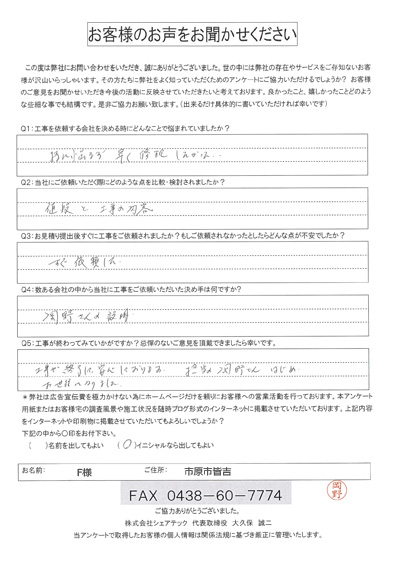 お客様のお声をお聞かせください
この度は弊社にお問い合わせをいただき、誠にありがとうございました。世の中には弊社の存在やサービスをご存知ないお客
様が沢山いらっしゃいます。その方たちに弊社をよく知っていただくためのアンケートにご協力いただけるでしょうか? お客様
のご意見をお聞かせいただき今後の活動に反映させていただきたいと考えております。良かったこと、嬉しかったことどのよう
な些細な事でも結構です。是非ご協力お願い致します。(出来るだけ具体的に書いていただければ幸いです)
Q1:工事を依頼する会社を決める時にどんなことで悩まれていましたか?
早く修理
Q2:当社にご依頼いただく際にどのような点を比較・検討されましたか?
値段と工事の内容
Q3:お見積り提出後すぐに工事をご依頼されましたか?もしご依頼されなかったとしたらどんな点が不安でしたか?
すぐ依頼した
Q4:数ある会社の中から当社に工事をご依頼いただいた決め手は何ですか?
岡野さんの説明
Q5:工事が終わってみていかがですか?忌憚のないご意見を頂戴できましたら幸いです。
工事が終了し、安心しております。担当の岡野さんはじめ
お世話になりました。
*弊社は広告宣伝費を極力かけない為にホームページだけを頼りにお客様への営業活動を行っております。本アンケート
用紙またはお客様宅の調査風景や施工状況を随時ブログ形式のインターネットに掲載させていただいております。上記内容
をインターネットや印刷物に掲載させていただいてもよろしいでしょうか?
下記の中から〇印をお付け下さい。
( )名前を出してもよい (〇)イニシャルなら出してもよい
お名前: F様 ご住所: 市原市皆吉
FAX 0438-60-7774
岡野
ご協力ありがとうございました。
株式会社シェアテック 代表取締役 大久保 誠二
当アンケートで取得したお客様の個人情報は関係法規に基づき厳正に管理いたします。